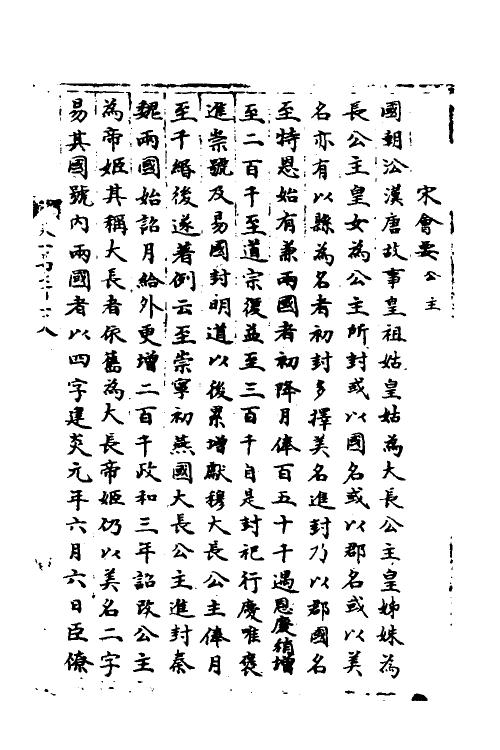 宋會要公主
國朝㳂漢唐故事皇祖姑皇姑為大長公主皇姊妹為
長公主皇女為公主所封或以國名或以郡名或以美
名亦有以縣為名者初封多擇美名進封乃以郡國名
至特恩始有兼兩國者初降月俸百五十千遇恩慶稍增
至二百千至道宗復益至三百千自是封祀行慶唯褒
進崇號及易國封明道以後累增獻穆大長公主俸月
至千緡後遂著例云至崇寧初燕國大長公主進封秦
魏兩國始詔月給外更增二百千政和三年詔改公主
為帝姬其稱大長者依舊為大長帝姬仍以美名二字
易其國號內兩國者以四字建炎元年六月六日臣僚